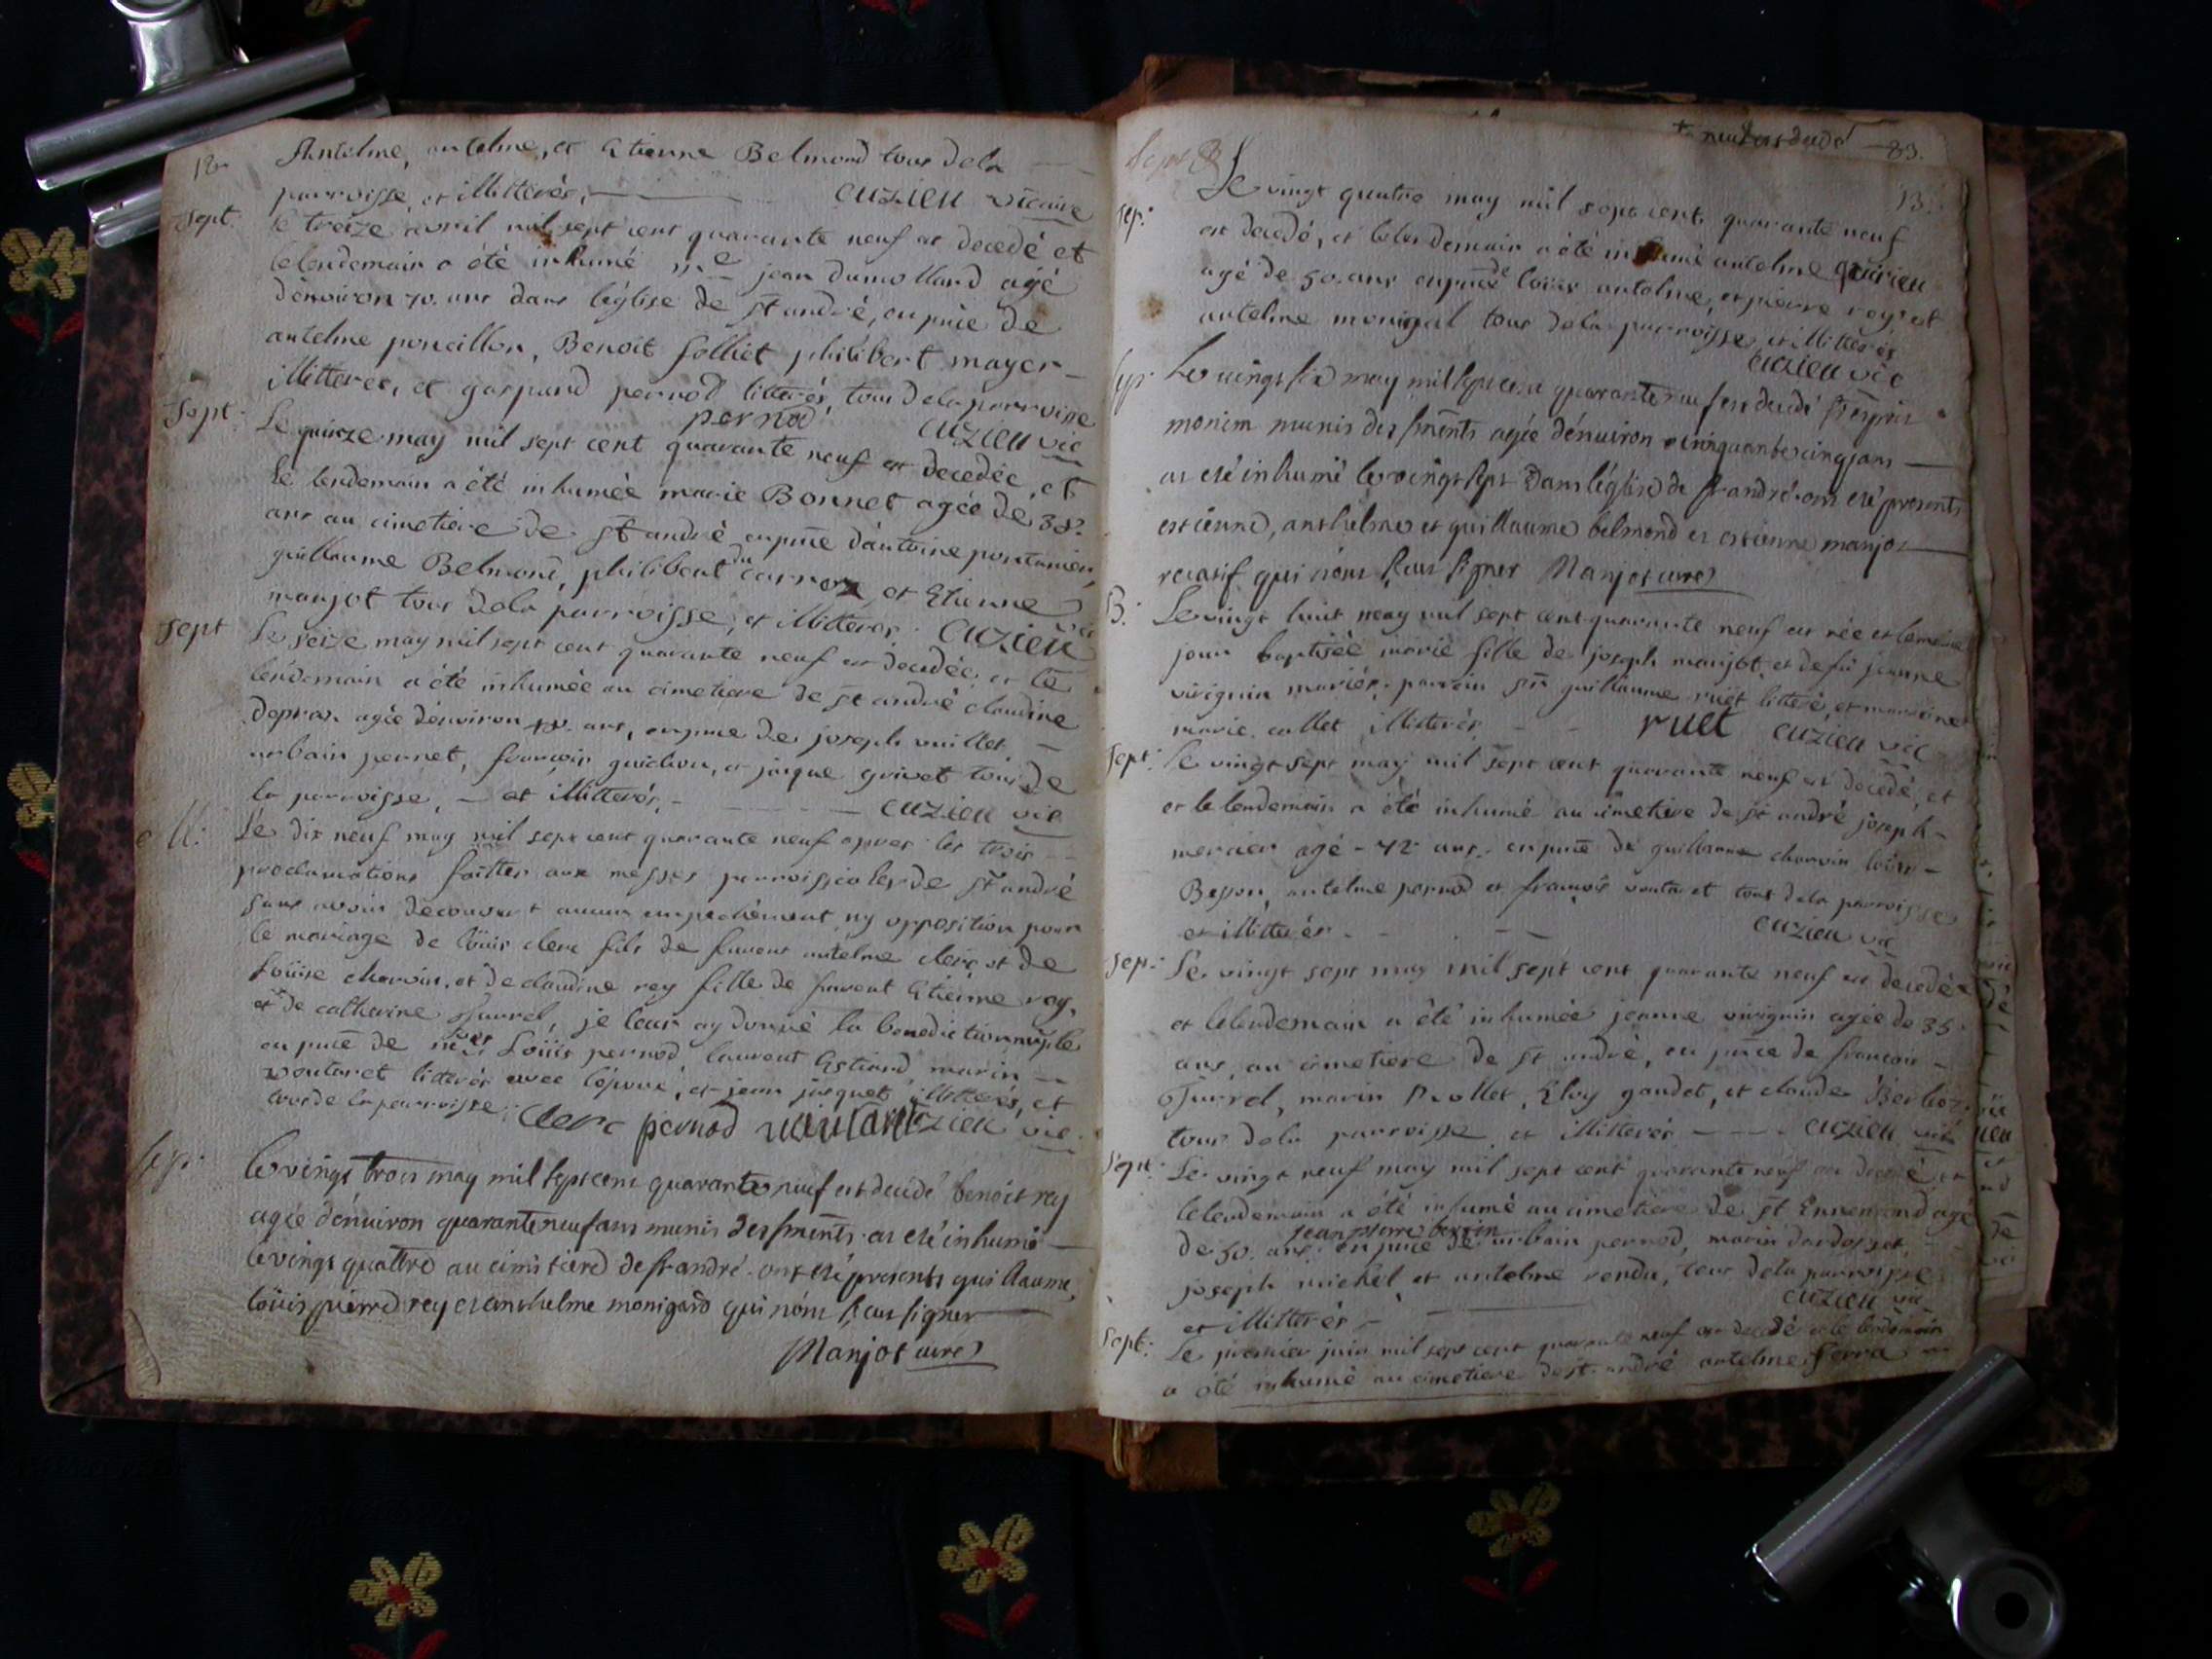 18
Antelme, antelme, et Etienne Belmond tous dela
parroisse, et illitterés, cuzieu vicaire
sept. le treize avril mil sept cent quarante neuf est decedé et
le lendemain a été inhumé me jean dumollard agé
d'environ 70. ans dans l'église de st andré, en pñce de
antelme poncillon, Benoit folliet philibert mayer
illitteres, et gaspard pernod litterés, tous dela parroisse
pernod cuzieu vic
Sept. Le quinze may mil sept cent quarante neuf est decedée, et
le lendemain a été inhumée marie Bonnet agée de 38.
ans au cimetiere de st andré en pñce d'antoine
guillaume Belmond, philibert du et Etienne
manjot tous dela parroisse, et illitterés. cuzieu vic
sept Le seize may mil sept cent quarante neuf est decedée, et le
lendemain a été inhumée au cimetiere de st andré claudine
agée d'environ ans, en pñce de joseph vuillet
urbain pernet, françois guichon, et jaque grivet tous de
la parroisse, et illitterés, cuzieu vic
M. Le dix neuf may mil sept cent quarante neuf apres les trois
proclamations faittes aux messes parroissiales de st andré
sans avoir decouvert aucun empechement, ny opposition pour
le mariage de loüis clerc fils de antelme clerc, et de
loüise charvin, et de claudine rey fille de Etienne rey,
et de catherine je leur ay donné la benediction nuple
en pñce de loüis pernod laurent marin
voutaret litterés avec l'époux, et jean jaquet illitterés, et
tous de la parroisse. Clerc pernod cuzieu vic.
sep. le vingt trois may mil sept cent quarante neuf est decedé benoit rey
agée d'énuiron quarante neuf ans munis des sments. as eté inhumé
le vingt quattre au cimitiere de st andré. ont eté presents guillaume,
loüis pierre rey et anthelme monigard qui n'ons sceu signer
Manjot curé
83.
sep. Le vingt quatre may mil sept cent quarante neuf
est decedé, et le lendemain a été inhumé antelme
agé de 50. ans en pñce de loüis antelme, et pierre rey et
antelme tous dela parroisse, et illitterés
cuzieu vic
sep. Le vingt six may mil sept cent quarante neuf est decedé
monin munis des sments agée d'énuiron cinquante cinq ans
as eté inhumé le vingt sept dans l'église de st andré. ont eté presents
estienne, anthelme et guillaume belmond et estienne manjot
qui n'ons sceu signer Manjot curé
B. Le vingt huit may mil sept cent quarante neuf est née et le meme
jour baptisée marie fille de joseph manjot, et de jeanne
vivignin mariés. parrain sr guillaume ruet litteré, et marraine
marie collet illitterés ruet cuzieu vic
sept. Le vingt sept may mil sept cent quarante neuf est decedé, et
et le lendemain a été inhumé au cimetiere de st andré joseph
mercier agé 72 ans. en pñce de guillaume charvin loüis
Besson, antelme pernod et françois voutaret tous dela parroisse
et illitterés. cuzieu vic
sep. Le vingt sept may mil sept cent quarante neuf est decedée
et le lendemain a été inhumée jeanne vivignin agée de 35
ans, au cimetiere de st andré, en pñce de francois
marin Eloy gaudet, et claude
tous dela parroisse et illitterés cuzieu vic
sept. Le vingt neuf may mil sept cent quarante neuf est decedé, et
le lendemain a été inhumé au cimetiere de st Ennemond agé
jean pierre
de 50. ans. en pñce de urbain pernod, marin
joseph michel et antelme rendu, tous dela parroisse
et illitterés cuzieu vic
sept. Le premier juin mil sept cent quarante neuf est decedé et le lendemain
a été inhumé au cimetiere de st andré antelme ferra